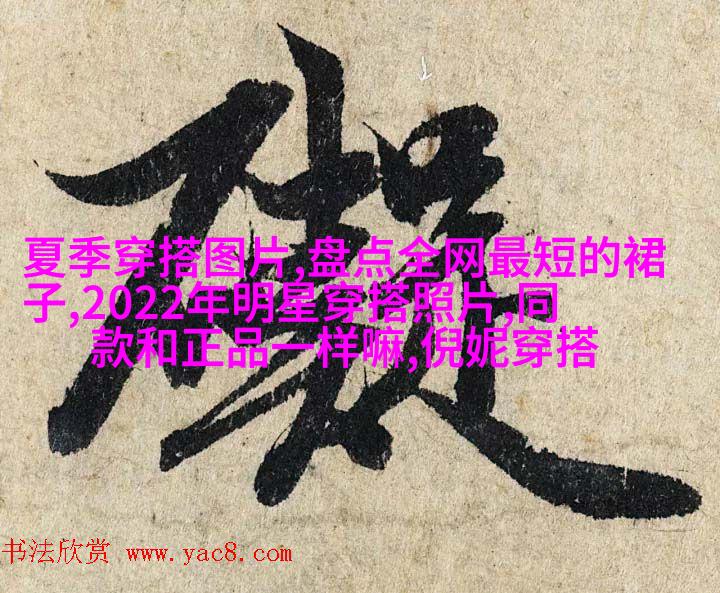 夏季穿搭图片,盘点全网最短的裙
子,2022年明星穿搭照片,同
款和正品一样嘛,倪妮穿搭
书法欣赏 www.yac8.com